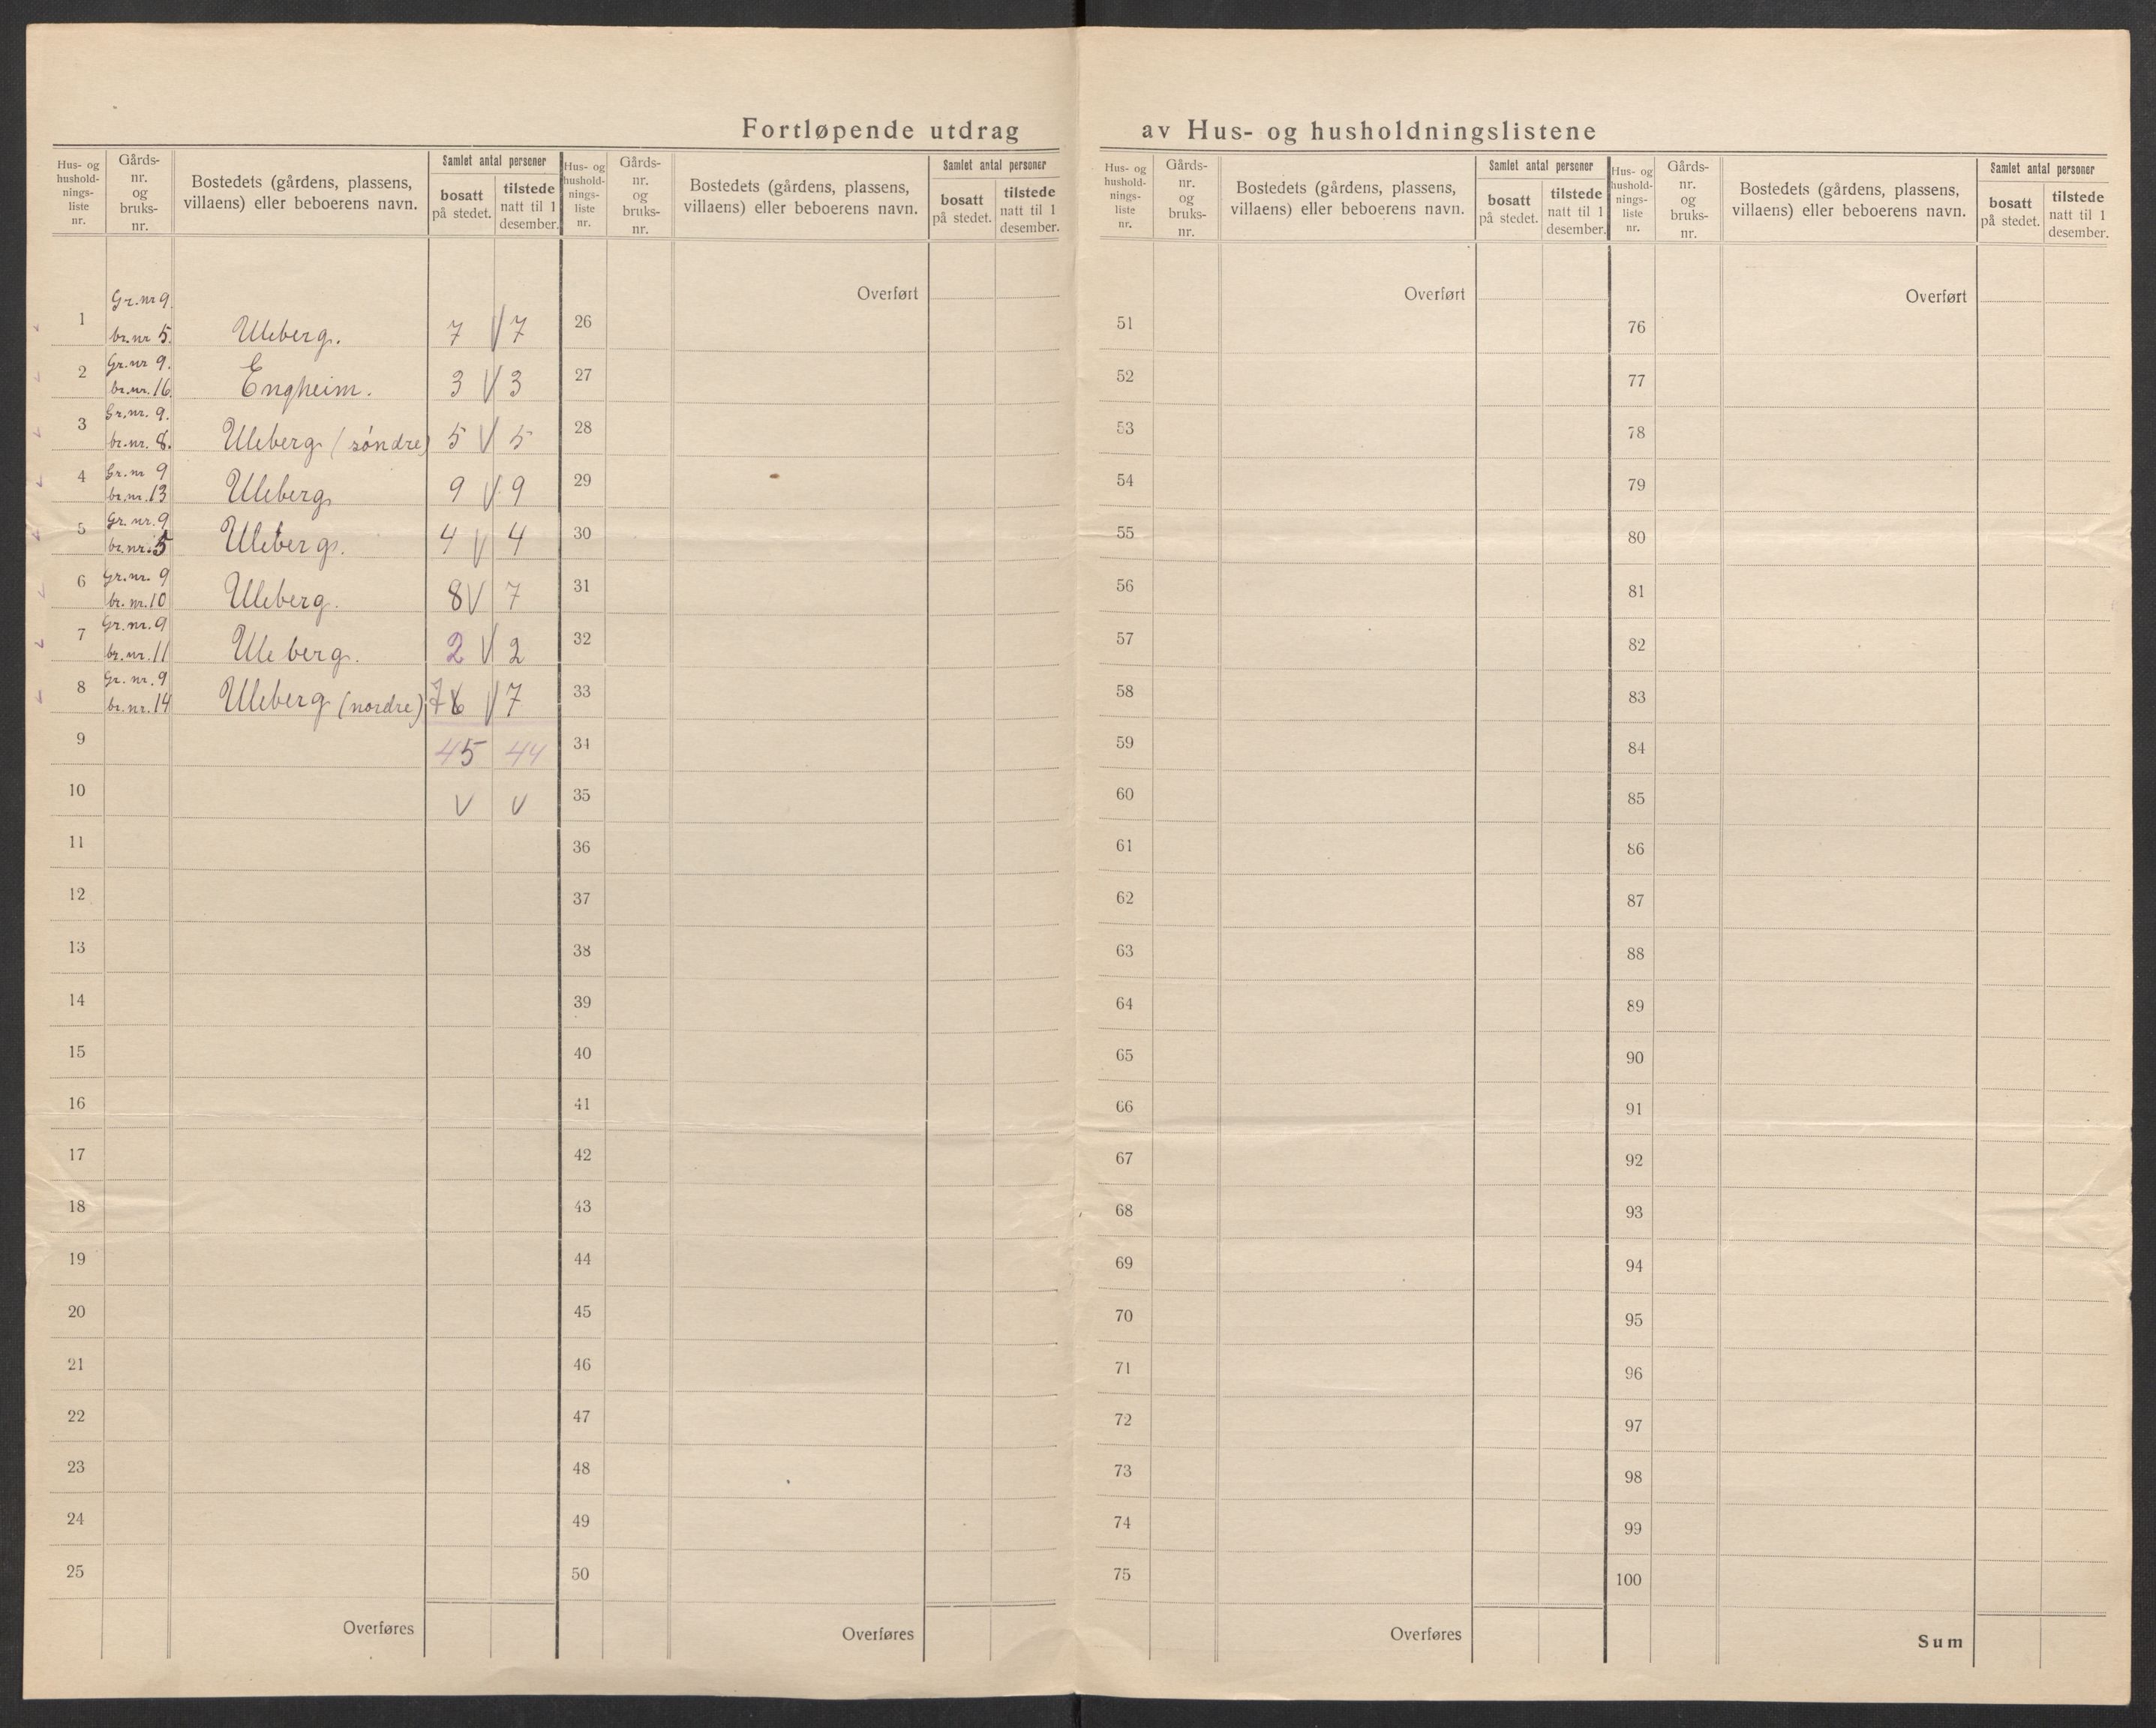 Fortløpende utdrag av Hus- og husholdningslistene
Hus- og hushold-nings-liste nr.
Gårds-nr. og bruks-nr.
Bostedets (gårdens, plassens, villaens) eller beboerens navn.
Samlet antal personer
bosatt på stedet.
tilstede natt til 1 desember.
Hus- og hushold-nings-liste nr.
Gårds-nr. og bruks-nr.
Bostedets (gårdens, plassens, villaens) eller beboerens navn.
Samlet antal personer
bosatt på stedet.
tilstede natt til 1 desember.
Hus- og hushold-nings-liste nr.
Gårds-nr. og bruks-nr.
Bostedets (gårdens, plassens, villaens) eller beboerens navn.
Samlet antal personer
bosatt på stedet.
tilstede natt til 1 desember.
Hus- og hushold-nings-liste nr.
Gårds-nr. og bruks-nr.
Bostedets (gårdens, plassens, villaens) eller beboerens navn.
Samlet antal personer
bosatt på stedet.
tilstede natt til 1 desember.
1 Gr.nr 9. br.nr 5. Uleberg. 7 V 7
2 Gr.nr 9. br.nr. 16. Engheim. 3 V 3
3 Gr.nr. 9. br.nr. 8. Uleberg (søndre) 5 V 5
4 Gr.nr 9 br.nr. 13 Uleberg 9 V 9
5 Gr. nr. 9 br.nr. 5 Uleberg. 4 V 4
6 Gr.nr. 9 br. nr. 10 Uleberg. 8 V 7
7 Gr.nr. 9 br.nr. 11 Uleberg. 2 V 2
8 Gr. nr. 9 br.nr. 14 Uleberg (nordre) 7 V 7
9 45 44
10 V V
11
12
13
14
15
16
17
18
19
20
21
22
23
24
25
Overføres
Overført
26
27
28
29
30
31
32
33
34
35
36
37
38
39
40
41
42
43
44
45
46
47
48
49
50
Overføres
Overført
51
52
53
54
55
56
57
58
59
60
61
62
63
64
65
66
67
68
69
70
71
72
73
74
75
Overføres
Overført
76
77
78
79
80
81
82
83
84
85
86
87
88
89
90
91
92
93
94
95
96
97
98
99
100
Sum